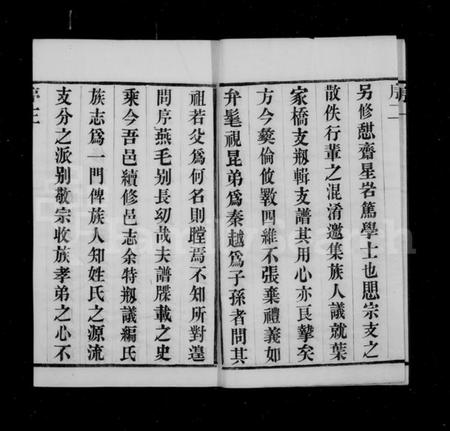 另修慰齋星岩篤學士也慁宗支之
散佚行輩之混淆邀集族人議就葉
家橋支剏輯支譜其用心亦良摯矣
方今彝倫攸斁四維不張棄禮義如
弁髦視昆弟為秦越為子孫者問其
祖若父為何名則瞠焉不知所對遑
問序燕毛别長幼哉夫譜牒載之史
乘今吾邑續修邑志余特剏議編氏
族志為一門俾族人知姓氏之源流
支分之派别敬宗收族孝弟之心不
序二
序三